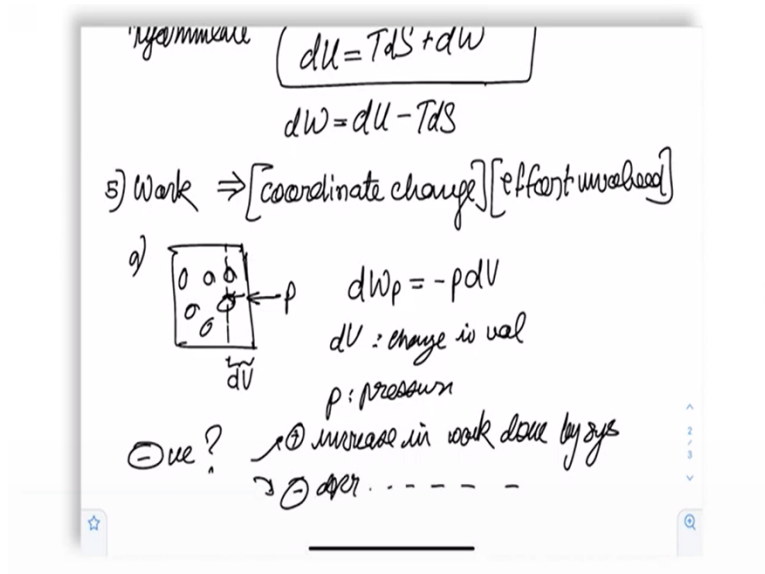 dU = TdS + dW
dW = dU - TdS
5) Work ⇒ [coordinate change] [effort involved]
a)
p
dWp = -pdV
dV
dV : change in vol
p : pressure
⊖ ve ?
⊕ increase in work done by sys
⊖ decr. - - - - -
2
/
3